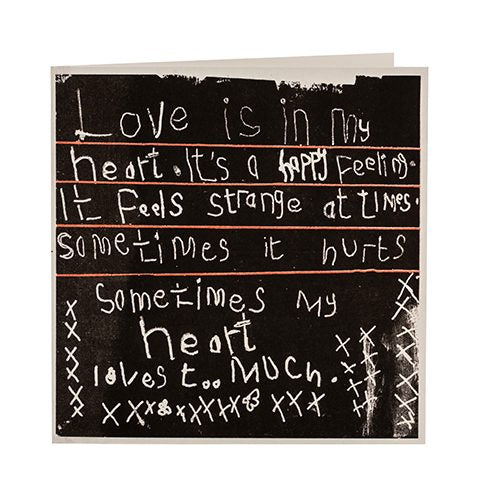 Love is in my
heart. It's a happy feeling.
It feels strange at times.
Sometimes it hurts
Sometimes my
heart
loves too MUCH.